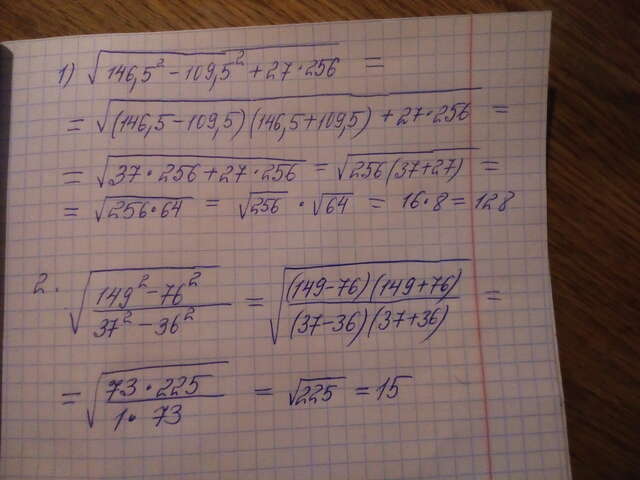 1) √(146,5² - 109,5² + 27·256) =
= √((146,5-109,5)(146,5+109,5) + 27·256) =
= √(37·256+27·256) = √(256(37+27)) =
= √(256·64) = √256 · √64 = 16·8 = 128
2. √((149²-76²)/(37²-36²)) = √((149-76)(149+76)/(37-36)(37+36)) =
= √((73·225)/(1·73)) = √225 = 15